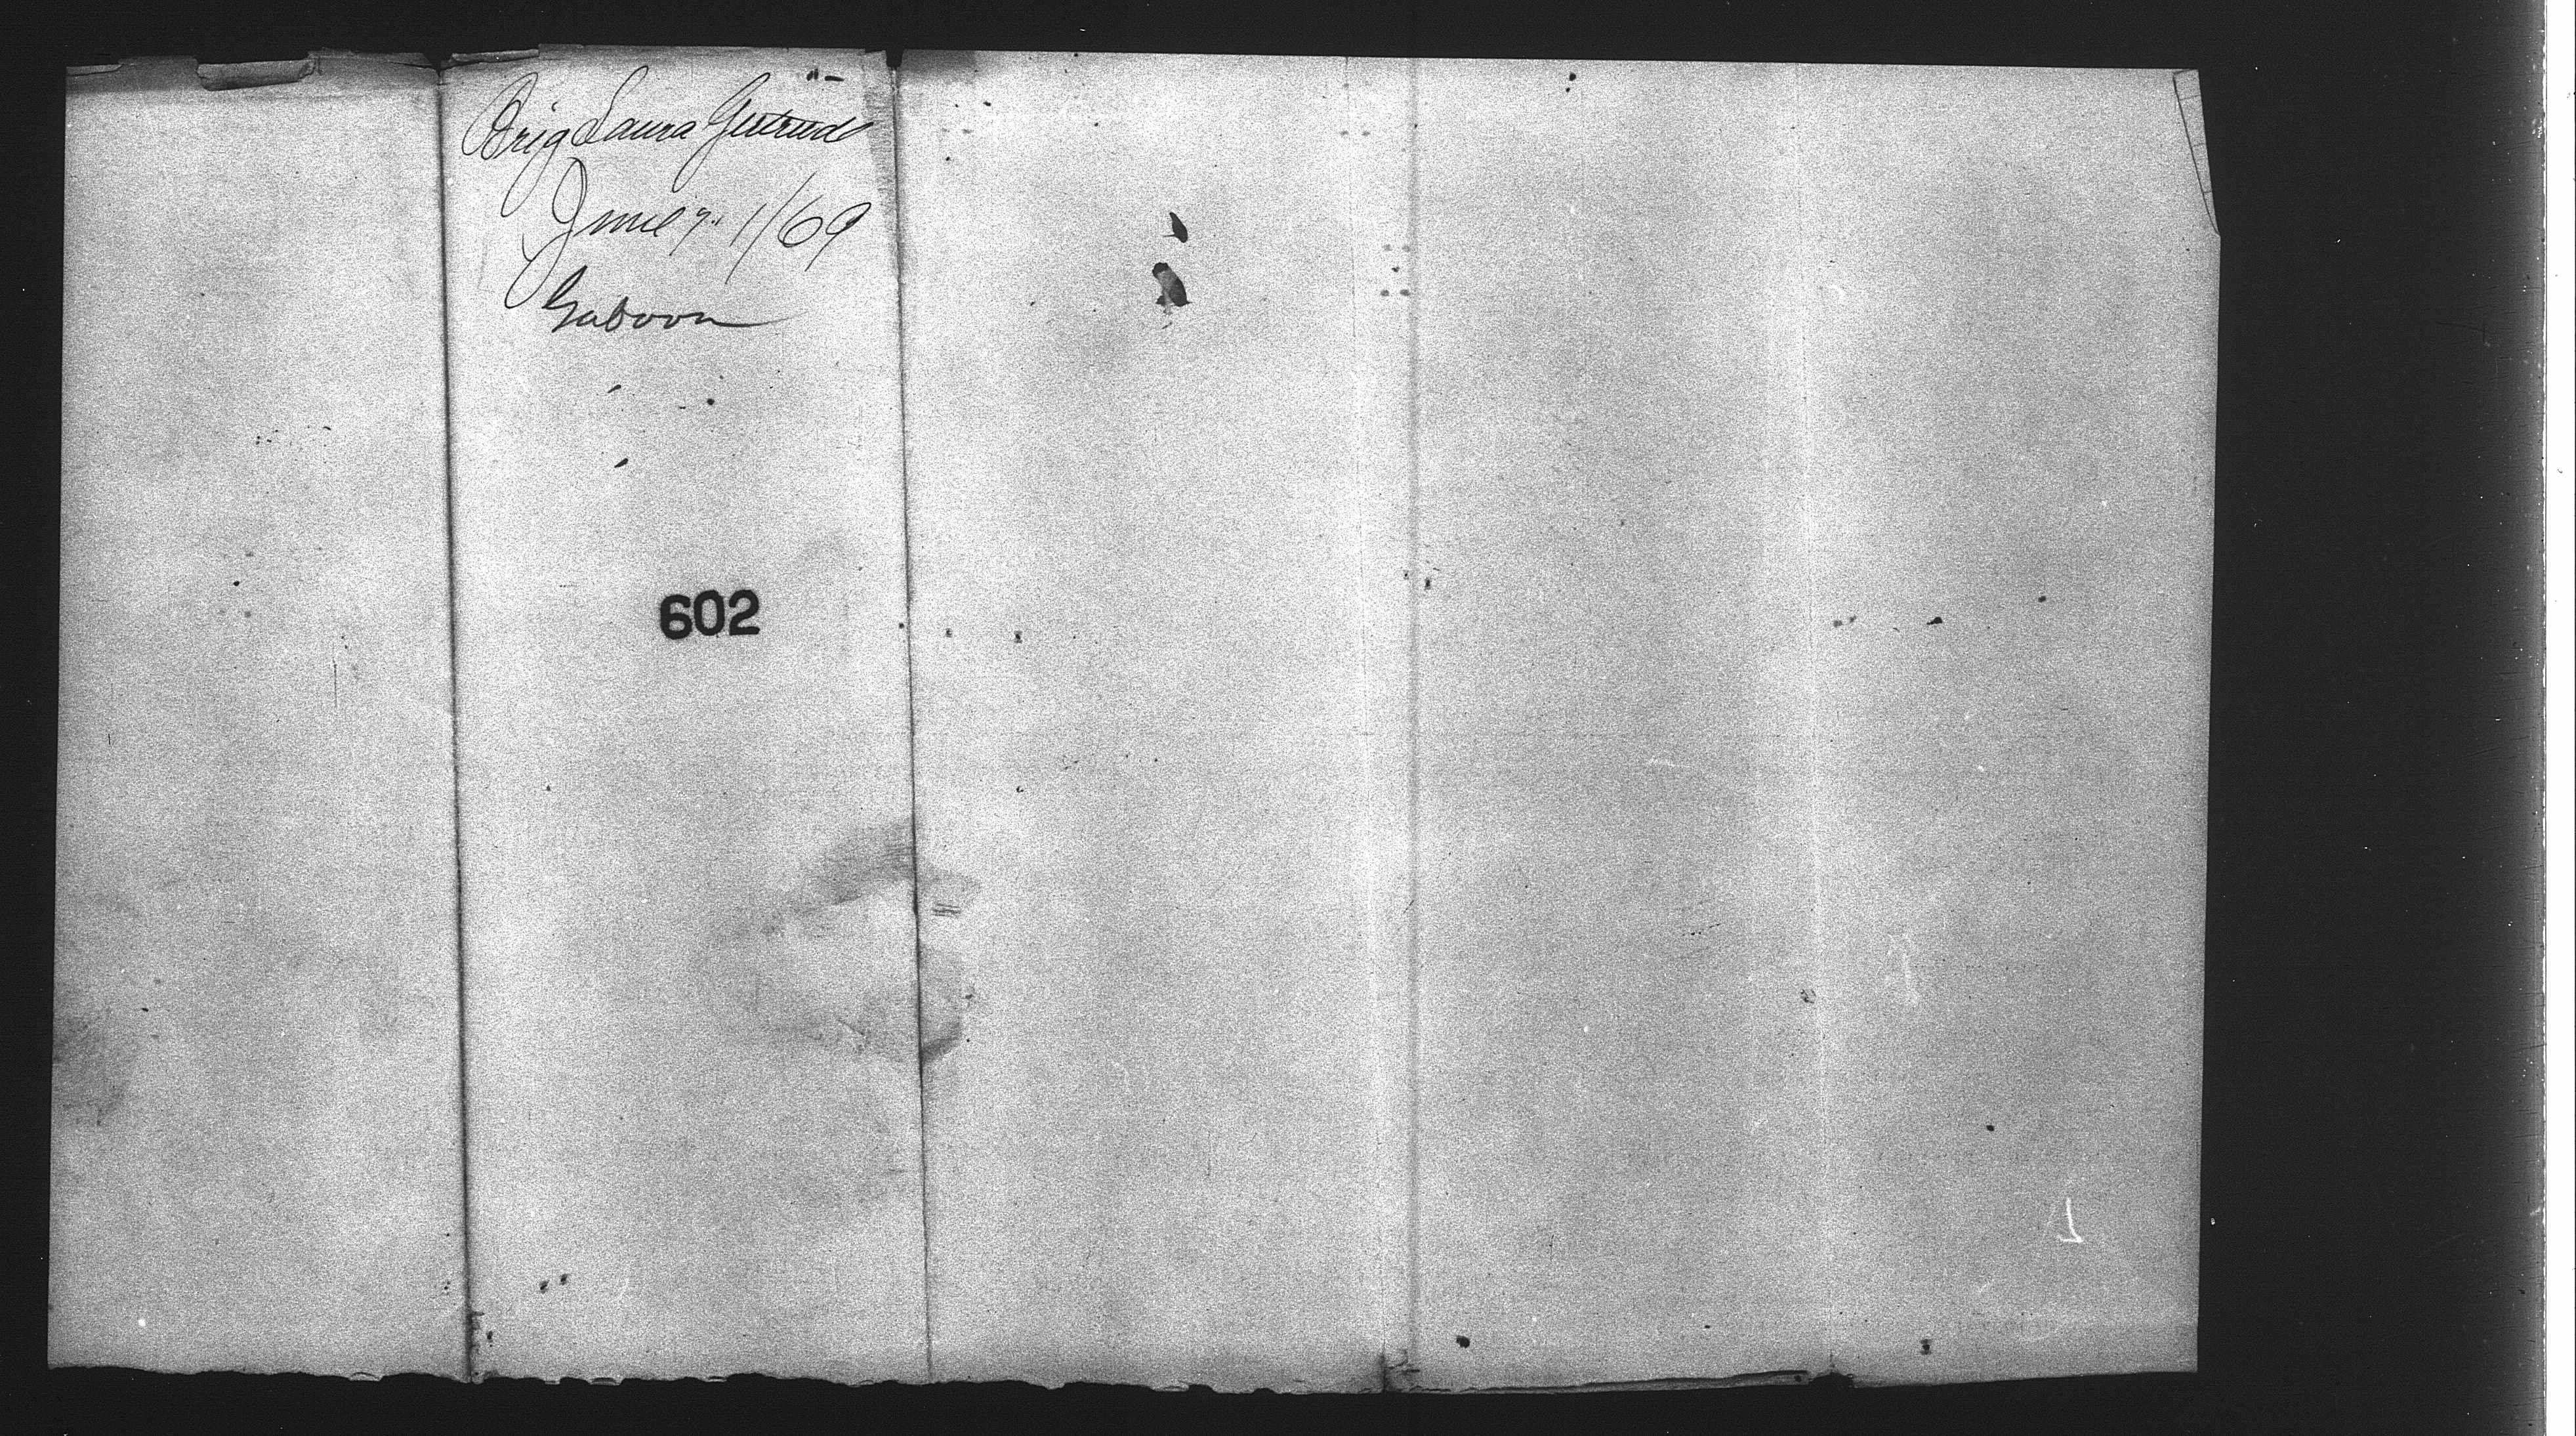 Brig Laura Gertrude
June 1/69
Gaboon
602